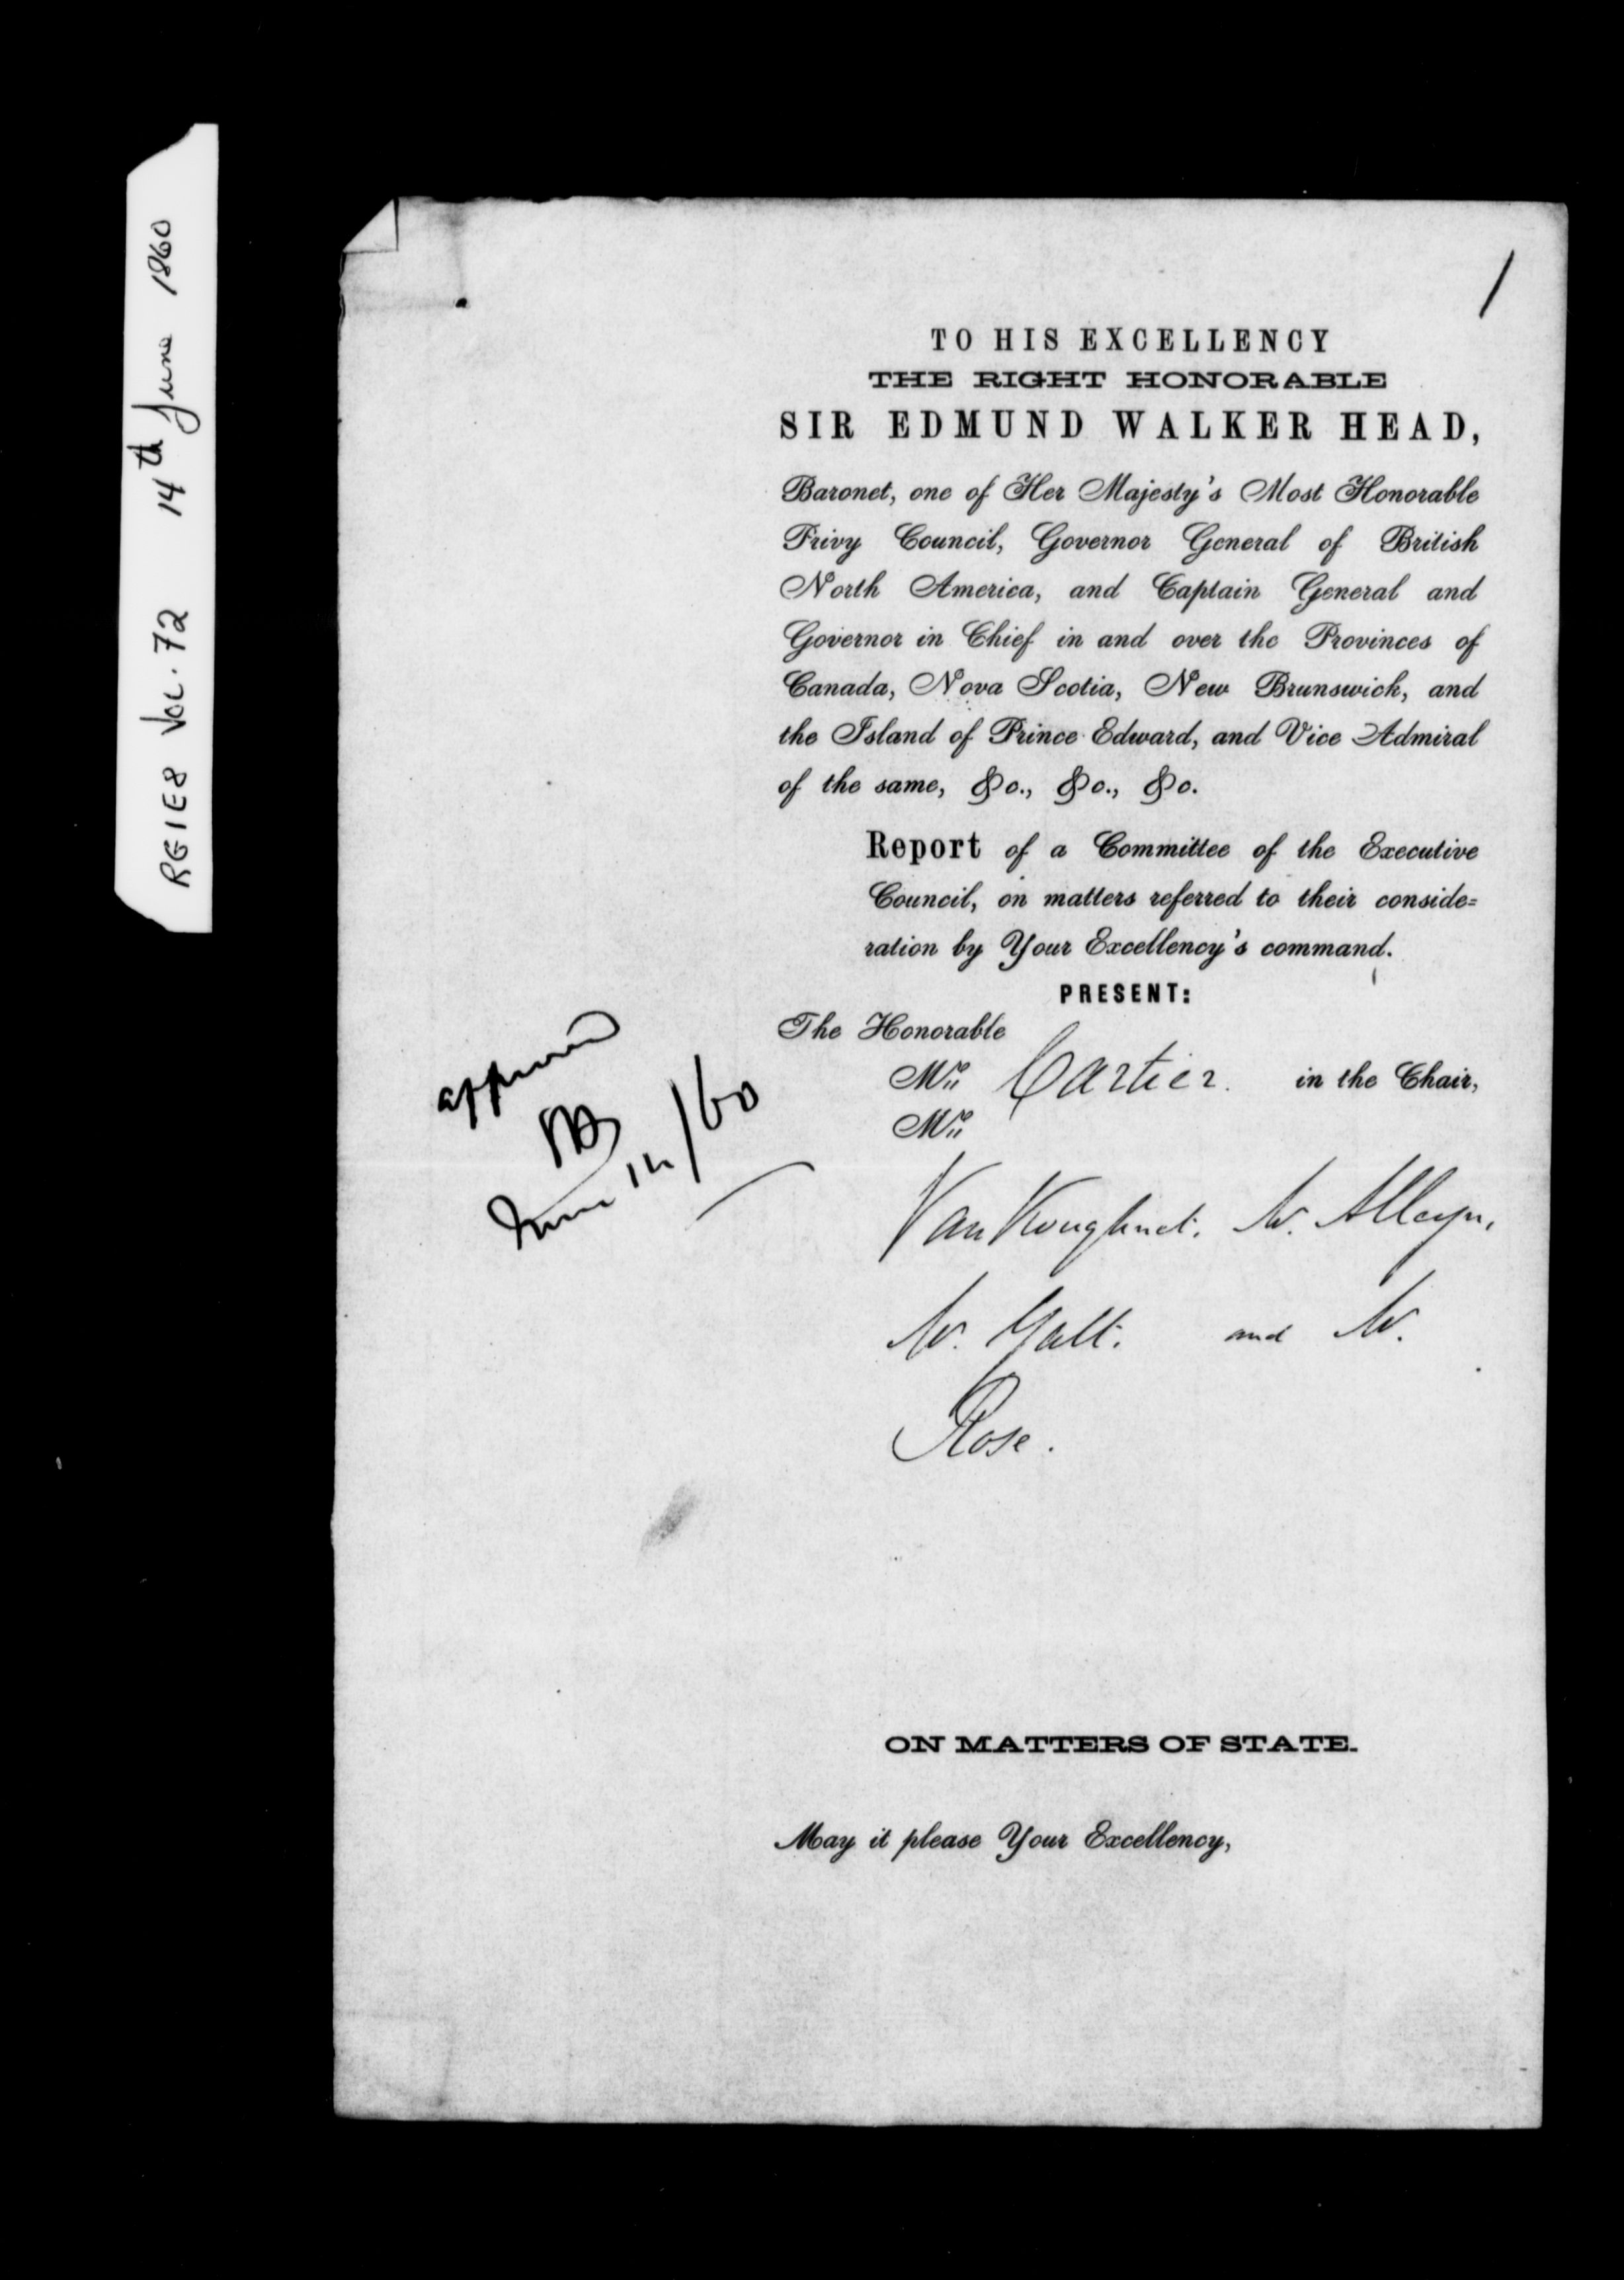 RG1E8 Vol. 72 14th June 1860
1
TO HIS EXCELLENCY
THE RIGHT HONORABLE
SIR EDMUND WALKER HEAD,
Baronet, one of Her Majesty's Most Honorable
Privy Council, Governor General of British
North America, and Captain General and
Governor in Chief in and over the Provinces of
Canada, Nova Scotia, New Brunswick, and
the Island of Prince Edward, and Vice Admiral
of the same, &c., &c., &c.
Report of a Committee of the Executive
Council, on matters referred to their conside=
ration by Your Excellency's command.
PRESENT:
The Honorable
Mr. Cartier. in the Chair,
Mr.
VanKoughnet. Mr. Alleyn,
Mr. Galt. and Mr.
Rose.
approved
June 14/60
ON MATTERS OF STATE.
May it please Your Excellency,